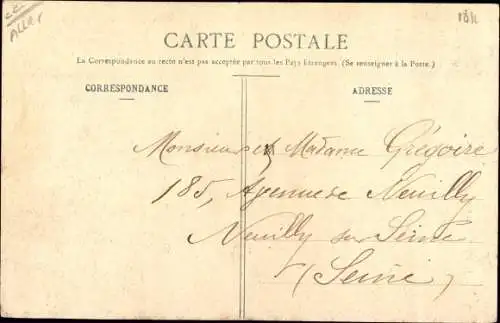 ALLIER
CARTE POSTALE
La Correspondance au recto n'est pas acceptée par tous les Pays Étrangers. (Se renseigner à la Poste.)
CORRESPONDANCE
ADRESSE
Monsieur et Madame Grégoire
185, Avenue de Neuilly
Neuilly sur Seine
(Seine)